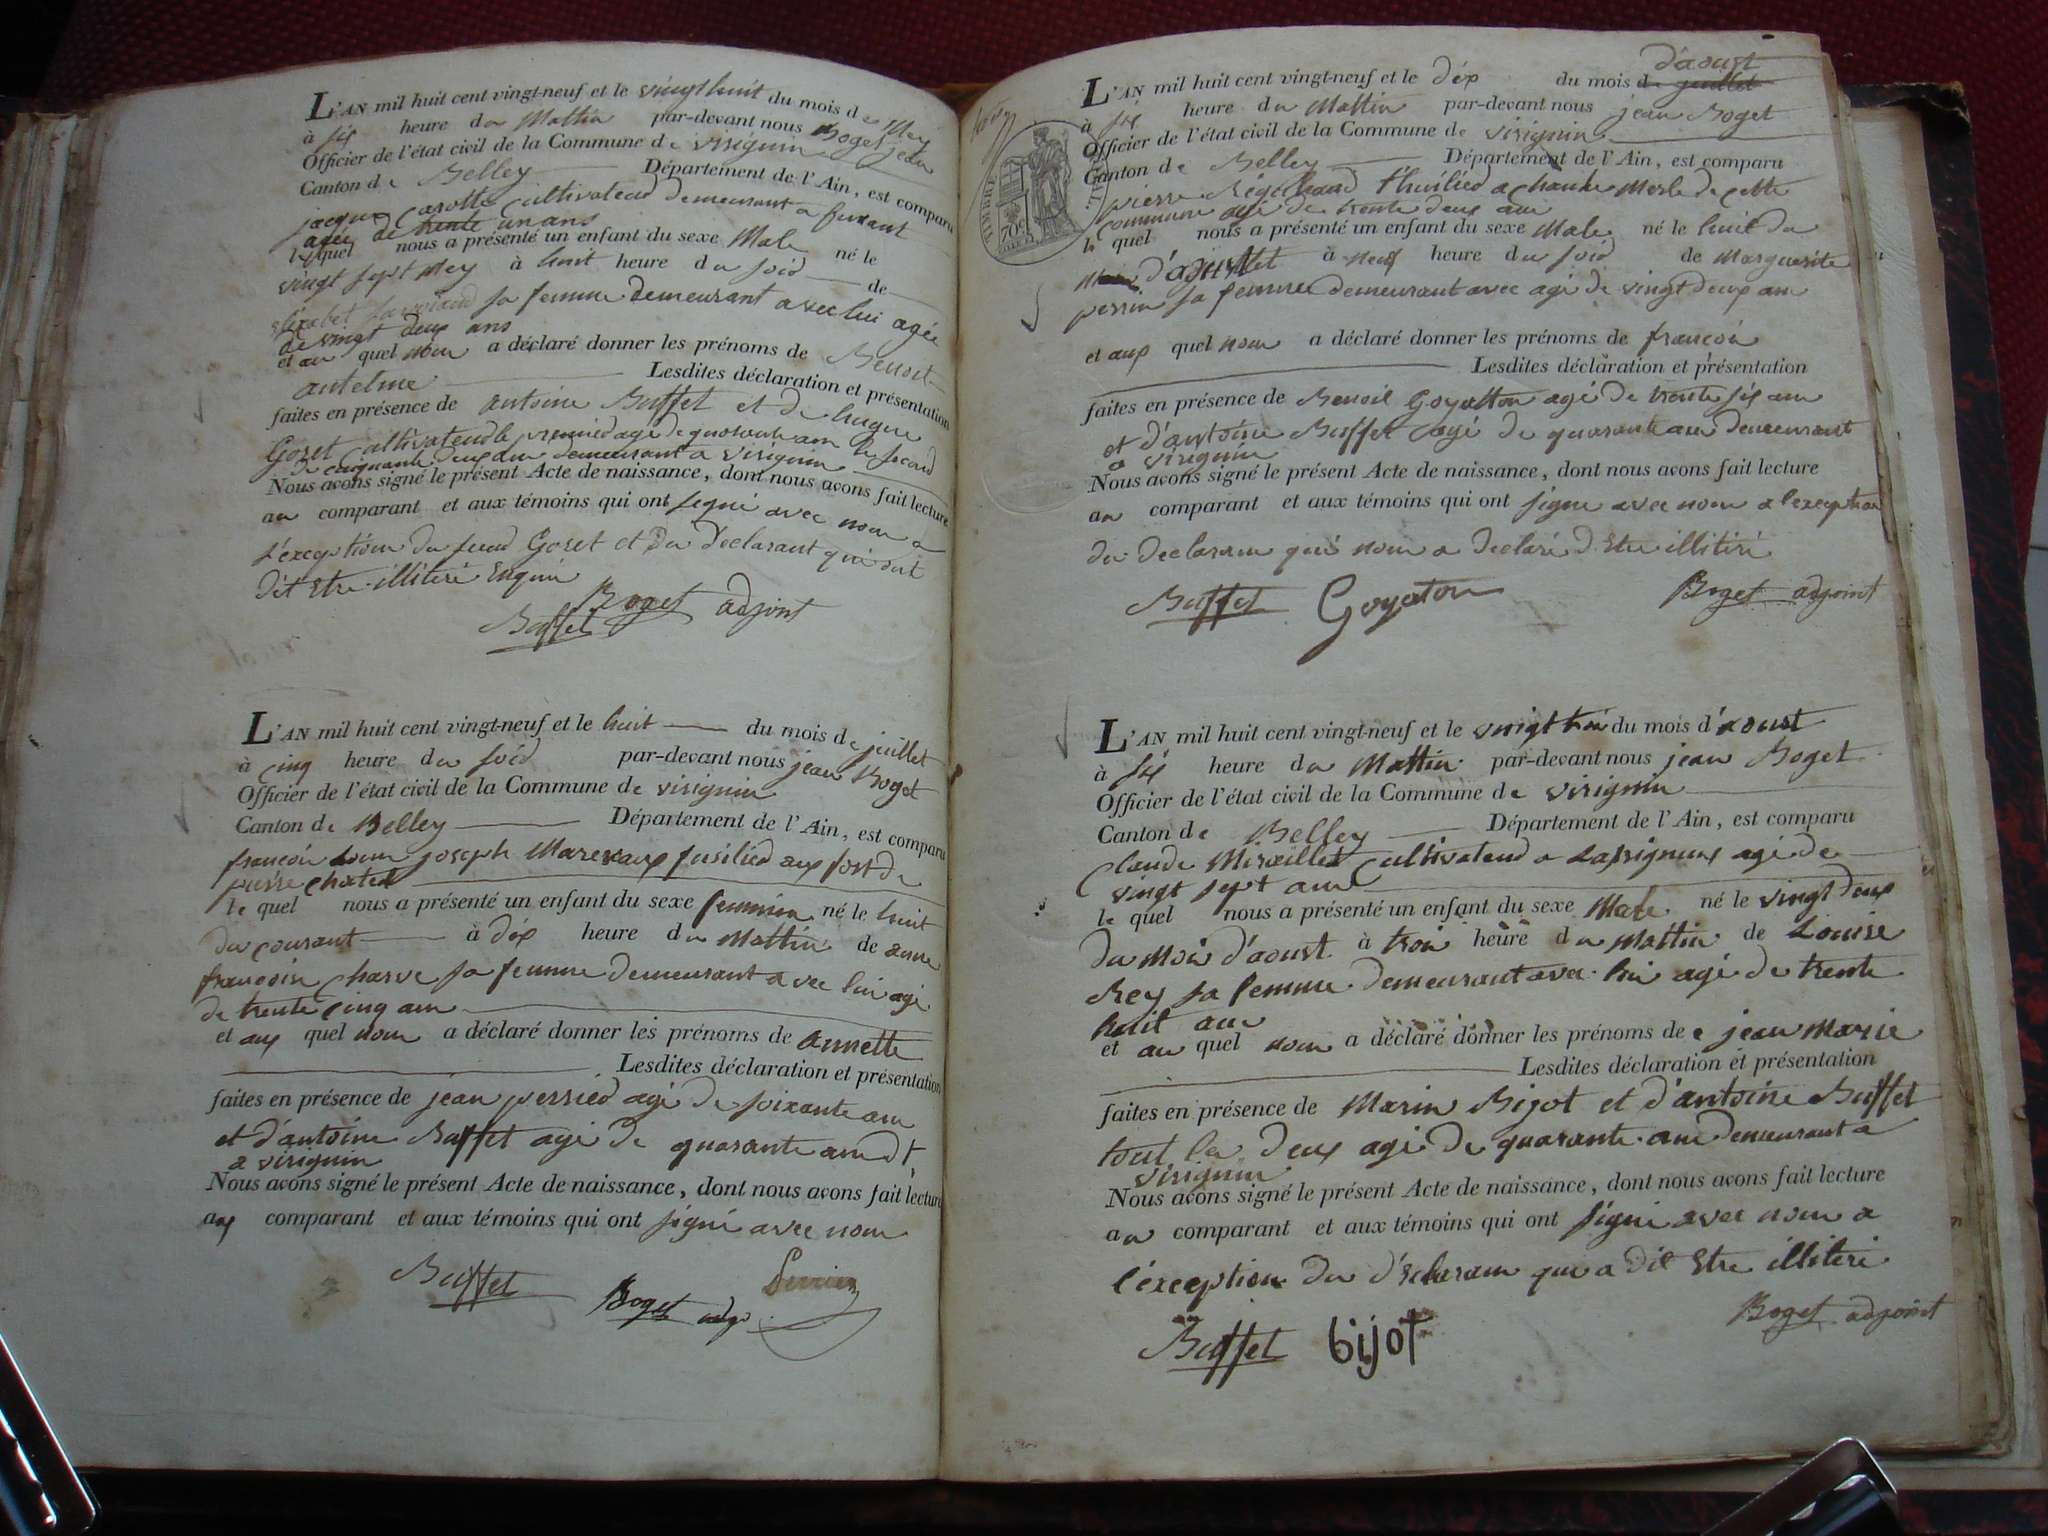 L'AN mil huit cent vingt-neuf et le vingt huit du mois de Mey
à six heure du Mattin par-devant nous Boget jean
Officier de l'état civil de la Commune de virignin
Canton de Belley Département de l'Ain, est comparu
jacque carotte cultivateur demeurant a
agée de trente un ans
le quel nous a présenté un enfant du sexe Male né le
vingt sept Mey à huit heure du soir de
sa femme demeurant avec lui agée
de vingt deux ans
et au quel nom a déclaré donner les prénoms de Benoit
antelme Lesdites déclaration et présentation
faites en présence de antoine Buffet et de hugue
Goret cultivateur le premier agé de quarante ans le second
de cinquante deux ans demeurant a virignin
Nous avons signé le présent Acte de naissance, dont nous avons fait lecture
au comparant et aux témoins qui ont signé avec nous a
l'exception du Goret et du declarant qui ont
dit Etre illitiré
Boget adjoint
Buffet
L'AN mil huit cent vingt-neuf et le huit du mois de juillet
à cinq heure du soir par-devant nous jean Boget
Officier de l'état civil de la Commune de virignin
Canton de Belley Département de l'Ain, est comparu
françois joseph fusilier aux fort de
pierre chatel
le quel nous a présenté un enfant du sexe feminin né le huit
du courant à dix heure du Mattin de anne
françoise Charve sa femme demeurant avec lui agé
de trente cinq ans
et aux quel nom a déclaré donner les prénoms de annette
Lesdites déclaration et présentation
faites en présence de jean perrier agé de soixante ans
et d'antoine Buffet agé de quarante ans dt
a virignin
Nous avons signé le présent Acte de naissance, dont nous avons fait lecture
aux comparant et aux témoins qui ont signé avec nous
Buffet Boget adjt Perrier
TIMBRE
70c
L'AN mil huit cent vingt-neuf et le dix du mois de juillet d'aoust
à six heure du Mattin par-devant nous jean Boget
Officier de l'état civil de la Commune de virignin
Canton de Belley Département de l'Ain, est comparu
pierre thuilier a chante Merle de cette
commune agé de trente deux ans
le quel nous a présenté un enfant du sexe Male né le huit du
d'aoust à neuf heure du soir de Marguerite
perrin sa femme demeurant avec agé de vingt deux ans
et aux quel nom a déclaré donner les prénoms de françois
Lesdites déclaration et présentation
faites en présence de Benoit Goyatton agé de trente six ans
et d'antoine Buffet agé de quarante ans demeurant
a virignin
Nous avons signé le présent Acte de naissance, dont nous avons fait lecture
au comparant et aux témoins qui ont signe avec nous a l'exception
du declarans qui nous a declaré d'Etre illitiré
Buffet Goyaton Boget adjoint
L'AN mil huit cent vingt-neuf et le vingt trois du mois d'aoust
à six heure du Mattin par-devant nous jean Boget
Officier de l'état civil de la Commune de virignin
Canton de Belley Département de l'Ain, est comparu
Claude Miraillet cultivateur a agé de
vingt sept ans
le quel nous a présenté un enfant du sexe Male né le vingt deux
du Mois d'aoust à trois heure du Mattin de Louise
Rey sa femme demeurant avec lui agé de trente
huit ans
et au quel nom a déclaré donner les prénoms de jean Marie
Lesdites déclaration et présentation
faites en présence de Marin Bijot et d'antoine Buffet
tout les deux agé de quarante ans demeurant a
virignin
Nous avons signé le présent Acte de naissance, dont nous avons fait lecture
au comparant et aux témoins qui ont signé avec nous a
l'exception du déclarans qui a dit Etre illitiré
Buffet bijot Boget adjoint